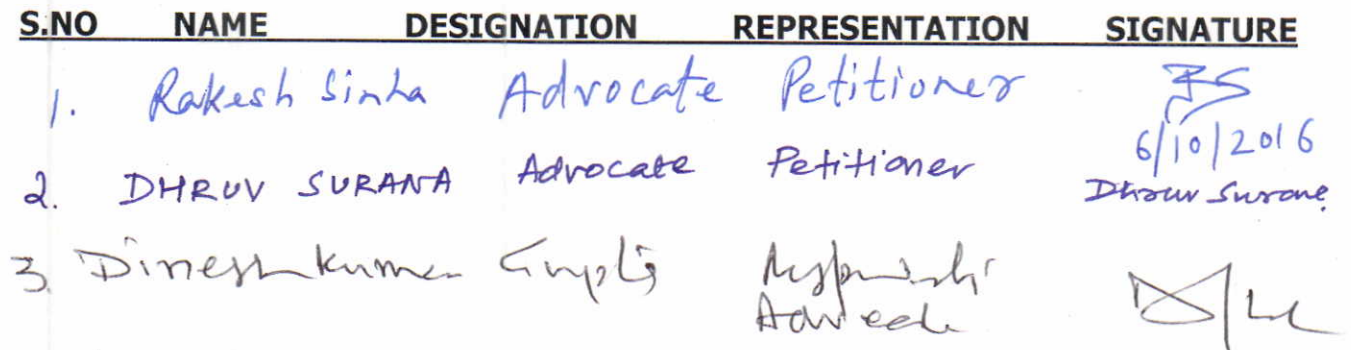 S.NO NAME DESIGNATION REPRESENTATION SIGNATURE
1. Rakesh Sinha Advocate Petitioner
6/10/2016
2. DHRUV SURANA Advocate Petitioner Dhruv Surana
3. Dinesh Kumar Gupta